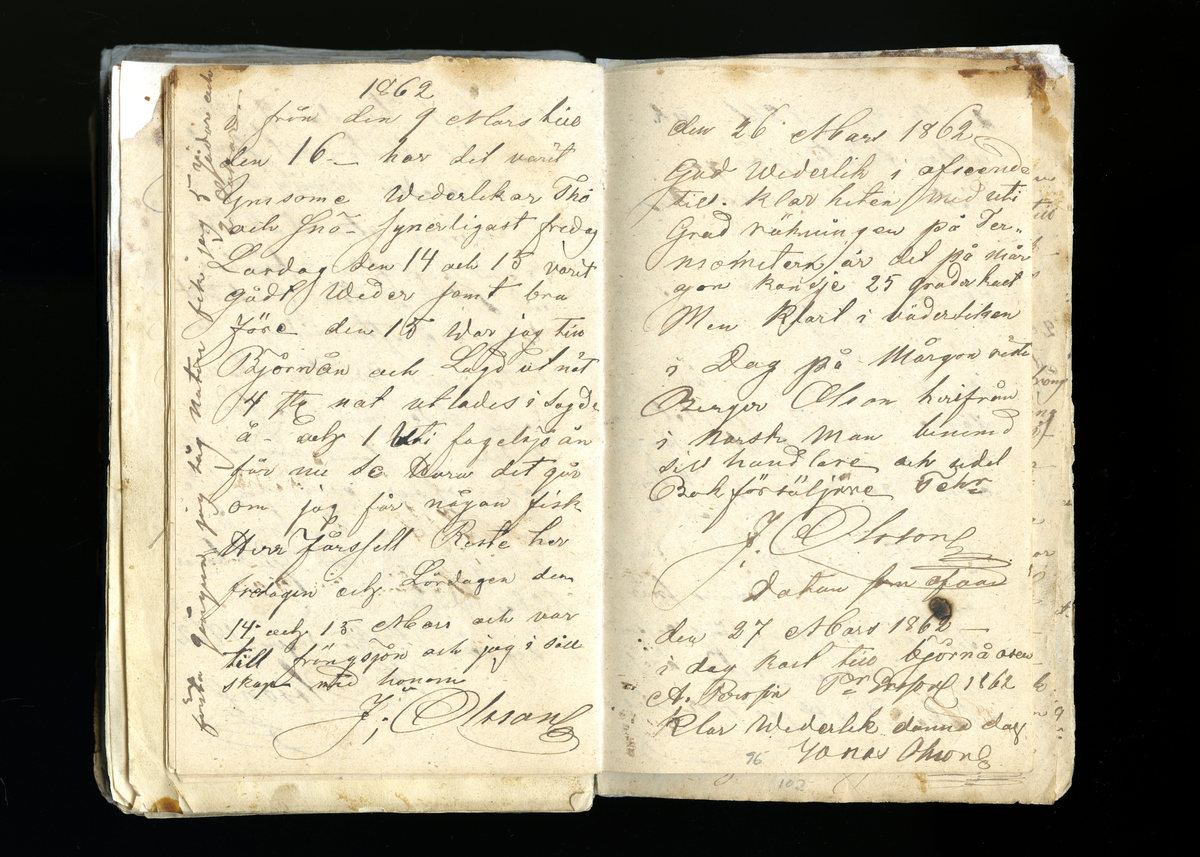 1862
från den 9 Mars till
den 16 — har det varit
Ynsome Wederlekar Thö
och Snö- synerligast fredag
Lördag den 14 och 15 varit
gådt Weder samt bra
före den 15 War jag till
Björnån och Lagd ut nät
14 nat utlades i Sogde
å- och 1 uti fogelsjö ån
får nu se Huru det går
om jag får någon fisk
Herr Fårssell Reste her
fredagen och Lördagen den
14 och 15 Mars och var
till frängsjön och jag i säll
skap med honom
J. Olsson
första gången jag tåg naten fik jag 5 gidor och
den 26 Mars 1862
God Wederlik i afseende
till klarheten med uti
Grad räkningen på Ter-
mometern är det på mår
gon kanje 25 grader kalt
Men Klart i väderliken
i Dag på Mårgon reste
Berger Olson herifrån
i Norsk Man benemd
sill handlare och udel
Bok försäljare
J. Olsson
Datum som ofaan
den 27 Mars 1862 —
i dag kal till Björnå åsen
A. Persson Pr Ersson 1862
Klar Wederlek denna dag
Jonas Olsson
96
102